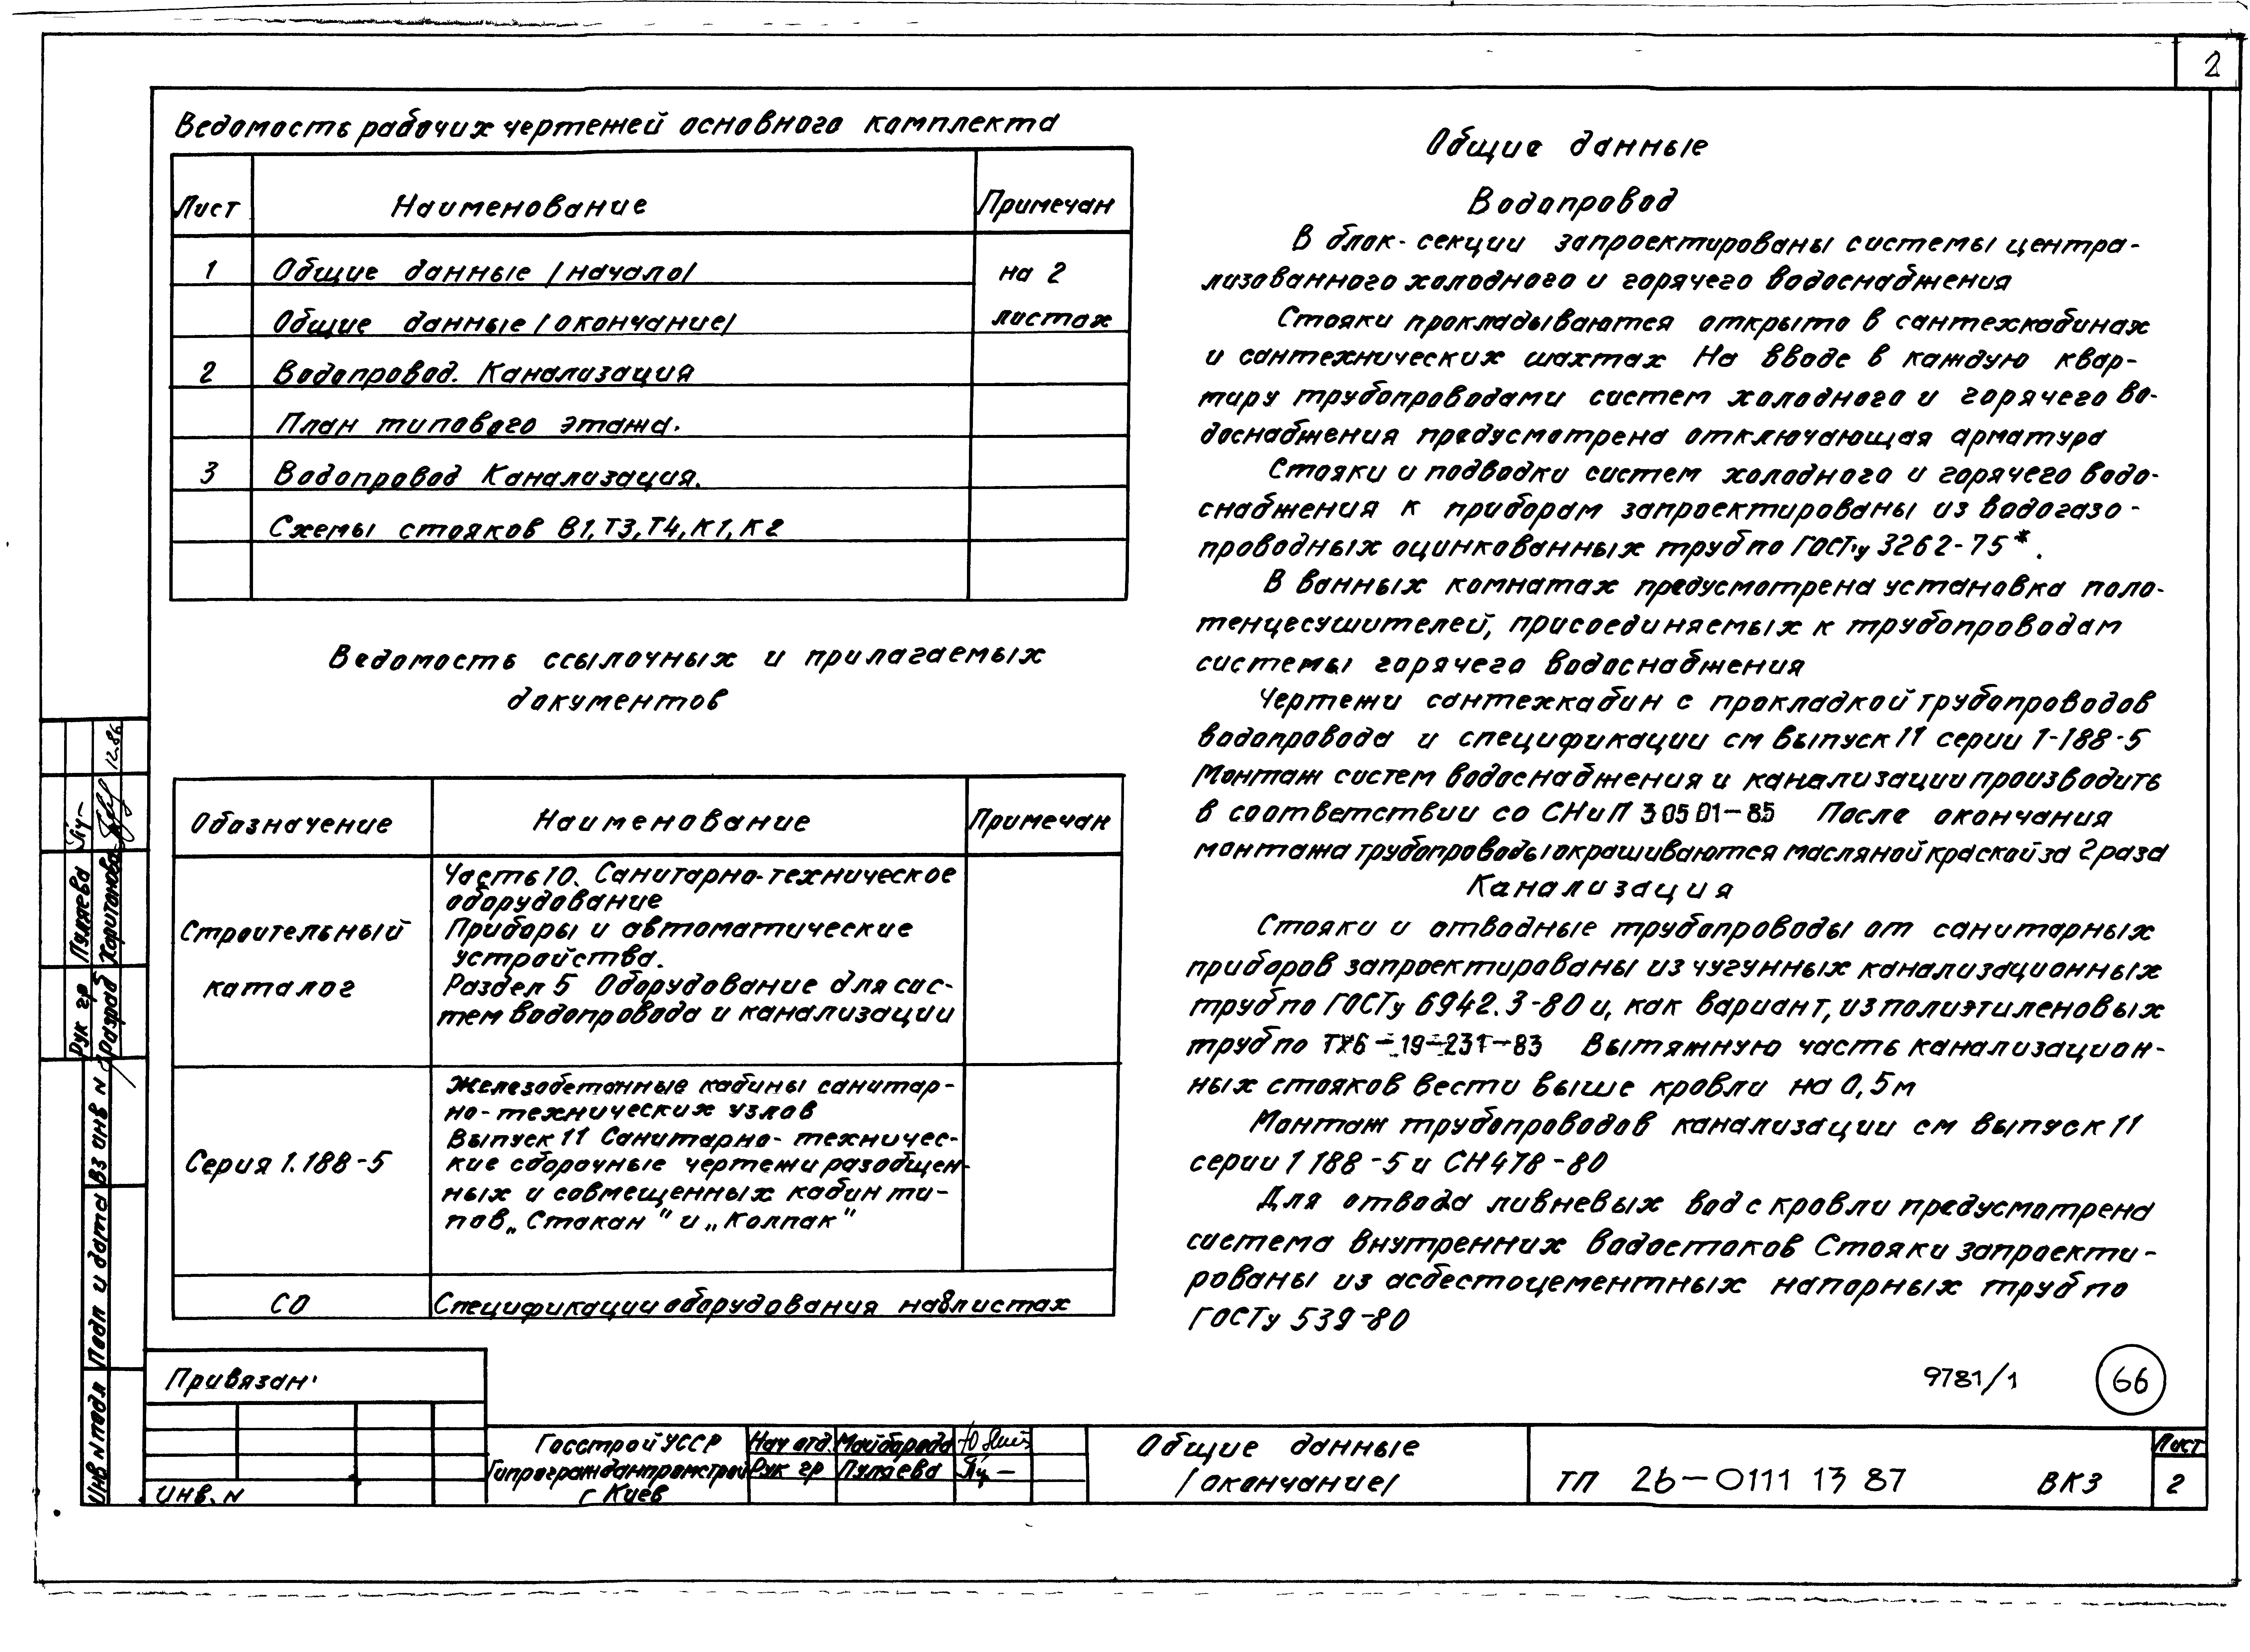 2
Ведомость рабочих чертежей основного комплекта
Лист Наименование Примечан
1 Общие данные /начало/ на 2
Общие данные /окончание/ листах
2 Водопровод. Канализация
План типового этажа.
3 Водопровод Канализация.
Схемы стояков В1, Т3, Т4, К1, К2
Ведомость ссылочных и прилагаемых
документов
Обозначение Наименование Примечан
Строительный
каталог
Часть 10. Санитарно-техническое
оборудование
Приборы и автоматические
устройства.
Раздел 5 Оборудование для сис-
тем водопровода и канализации
Серия 1.188-5
Железобетонные кабины санитар-
но-технических узлов
Выпуск 11 Санитарно-техничес-
кие сборочные чертежи разобщен-
ных и совмещенных кабин ти-
пов „Стакан" и „Колпак"
СО Спецификации оборудования на 8 листах
Общие данные
Водопровод
В блок-секции запроектированы системы центра-
лизованного холодного и горячего водоснабжения
Стояки прокладываются открыто в сантехкабинах
и сантехнических шахтах На вводе в каждую квар-
тиру трубопроводами систем холодного и горячего во-
доснабжения предусмотрена отключающая арматура
Стояки и подводки систем холодного и горячего водо-
снабжения к приборам запроектированы из водогазо-
проводных оцинкованных труб по ГОСТу 3262-75*.
В ванных комнатах предусмотрена установка поло-
тенцесушителей, присоединяемых к трубопроводам
системы горячего водоснабжения
Чертежи сантехкабин с прокладкой трубопроводов
водопровода и спецификации см выпуск 11 серии 1-188-5
Монтаж систем водоснабжения и канализации производить
в соответствии со СНиП 3 05 01-85 После окончания
монтажа трубопроводы окрашиваются масляной краской за 2 раза
Канализация
Стояки и отводные трубопроводы от санитарных
приборов запроектированы из чугунных канализационных
труб по ГОСТу 6942.3-80 и, как вариант, из полиэтиленовых
труб по 6-19-231-83 Вытяжную часть канализацион-
ных стояков вести выше кровли на 0,5м
Монтаж трубопроводов канализации см выпуск 11
серии 1 188-5 и СН 478-80
Для отвода ливневых вод с кровли предусмотрена
система внутренних водостоков Стояки запроекти-
рованы из асбестоцементных напорных труб по
ГОСТу 539-80
9781/1 66
Рук гр Пуляева
Разраб Харитонова 12.86
Инв N подл Подп и дата Вз инв N
Привязан
Инв. N
Госстрой УССР
Гипрогражданпромстрой
г Киев
Нач отд. Майборода
Рук гр Пуляева
Общие данные
/окончание/
ТП 26-0111 13 87 ВК3
Лист
2